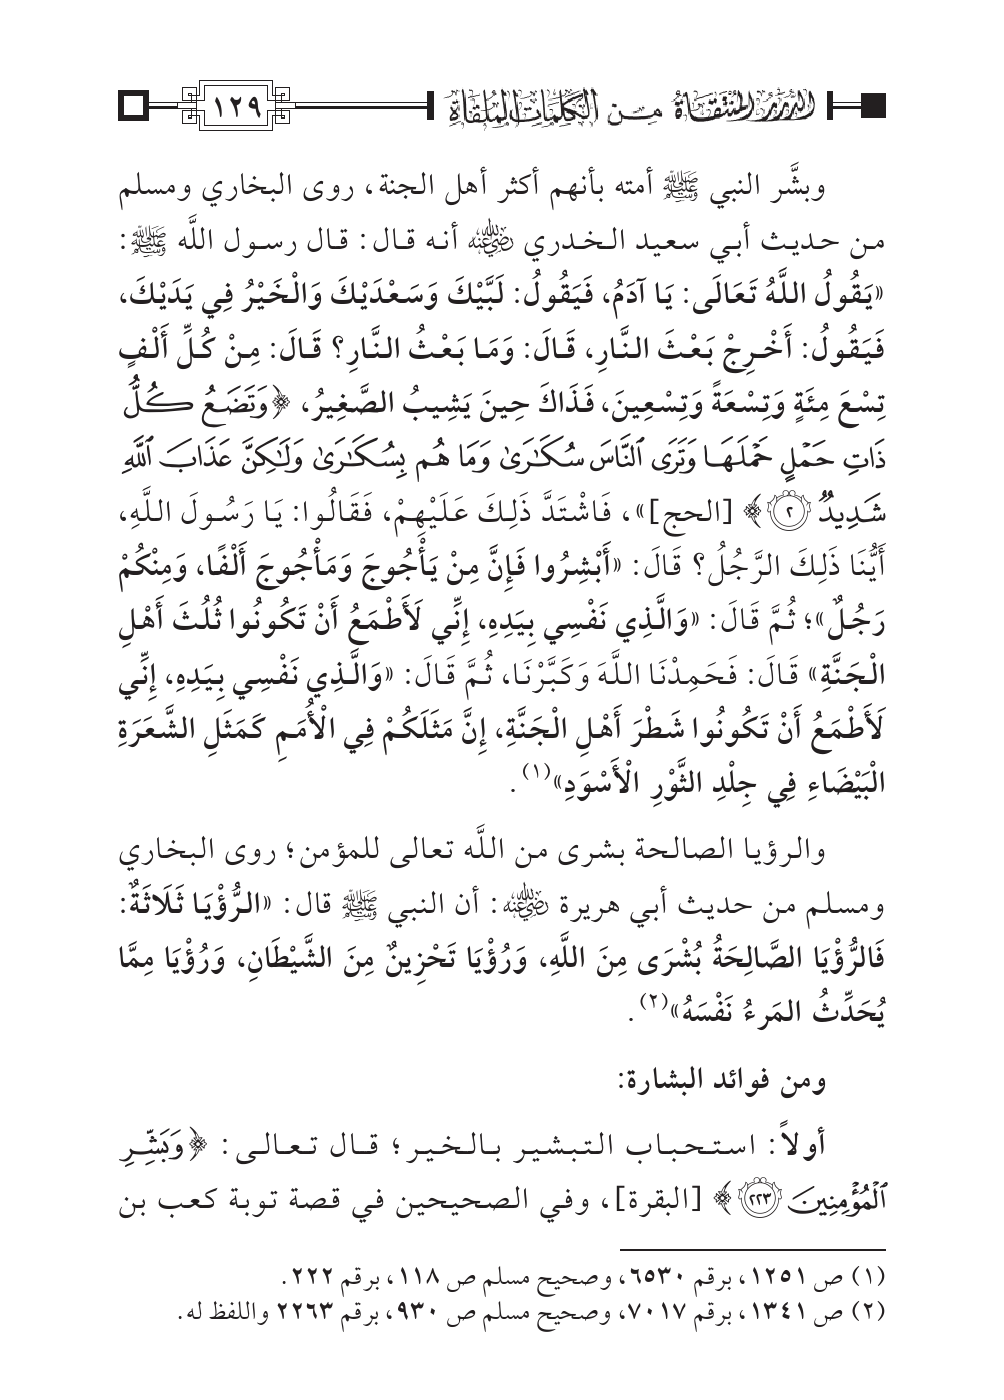 الدرر المنتقاة من الكلمات الملقاة ١٢٩
وبشَّر النبي ﷺ أمته بأنهم أكثر أهل الجنة، روى البخاري ومسلم
من حديث أبي سعيد الخدري رضي الله عنه أنه قال: قال رسول اللَّه ﷺ:
«يَقُولُ اللَّهُ تَعَالَى: يَا آدَمُ، فَيَقُولُ: لَبَّيْكَ وَسَعْدَيْكَ وَالْخَيْرُ فِي يَدَيْكَ،
فَيَقُولُ: أَخْرِجْ بَعْثَ النَّارِ، قَالَ: وَمَا بَعْثُ النَّارِ؟ قَالَ: مِنْ كُلِّ أَلْفٍ
تِسْعَ مِئَةٍ وَتِسْعَةً وَتِسْعِينَ، فَذَاكَ حِينَ يَشِيبُ الصَّغِيرُ، ﴿وَتَضَعُ كُلُّ
ذَاتِ حَمْلٍ حَمْلَهَا وَتَرَى ٱلنَّاسَ سُكَٰرَىٰ وَمَا هُم بِسُكَٰرَىٰ وَلَٰكِنَّ عَذَابَ ٱللَّهِ
شَدِيدٌ ٢﴾ [الحج]»، فَاشْتَدَّ ذَلِكَ عَلَيْهِمْ، فَقَالُوا: يَا رَسُولَ اللَّهِ،
أَيُّنَا ذَلِكَ الرَّجُلُ؟ قَالَ: «أَبْشِرُوا فَإِنَّ مِنْ يَأْجُوجَ وَمَأْجُوجَ أَلْفًا، وَمِنْكُمْ
رَجُلٌ»؛ ثُمَّ قَالَ: «وَالَّذِي نَفْسِي بِيَدِهِ، إِنِّي لَأَطْمَعُ أَنْ تَكُونُوا ثُلُثَ أَهْلِ
الْجَنَّةِ» قَالَ: فَحَمِدْنَا اللَّهَ وَكَبَّرْنَا، ثُمَّ قَالَ: «وَالَّذِي نَفْسِي بِيَدِهِ، إِنِّي
لَأَطْمَعُ أَنْ تَكُونُوا شَطْرَ أَهْلِ الْجَنَّةِ، إِنَّ مَثَلَكُمْ فِي الْأُمَمِ كَمَثَلِ الشَّعَرَةِ
الْبَيْضَاءِ فِي جِلْدِ الثَّوْرِ الْأَسْوَدِ»(١).
والرؤيا الصالحة بشرى من اللَّه تعالى للمؤمن؛ روى البخاري
ومسلم من حديث أبي هريرة رضي الله عنه: أن النبي ﷺ قال: «الرُّؤْيَا ثَلَاثَةٌ:
فَالرُّؤْيَا الصَّالِحَةُ بُشْرَى مِنَ اللَّهِ، وَرُؤْيَا تَحْزِينٌ مِنَ الشَّيْطَانِ، وَرُؤْيَا مِمَّا
يُحَدِّثُ المَرءُ نَفْسَهُ»(٢).
ومن فوائد البشارة:
أولاً: استحباب التبشير بالخير؛ قال تعالى: ﴿وَبَشِّرِ
ٱلْمُؤْمِنِينَ ٢٢٣﴾ [البقرة]، وفي الصحيحين في قصة توبة كعب بن
(١) ص ١٢٥١، برقم ٦٥٣٠، وصحيح مسلم ص ١١٨، برقم ٢٢٢.
(٢) ص ١٣٤١، برقم ٧٠١٧، وصحيح مسلم ص ٩٣٠، برقم ٢٢٦٣ واللفظ له.